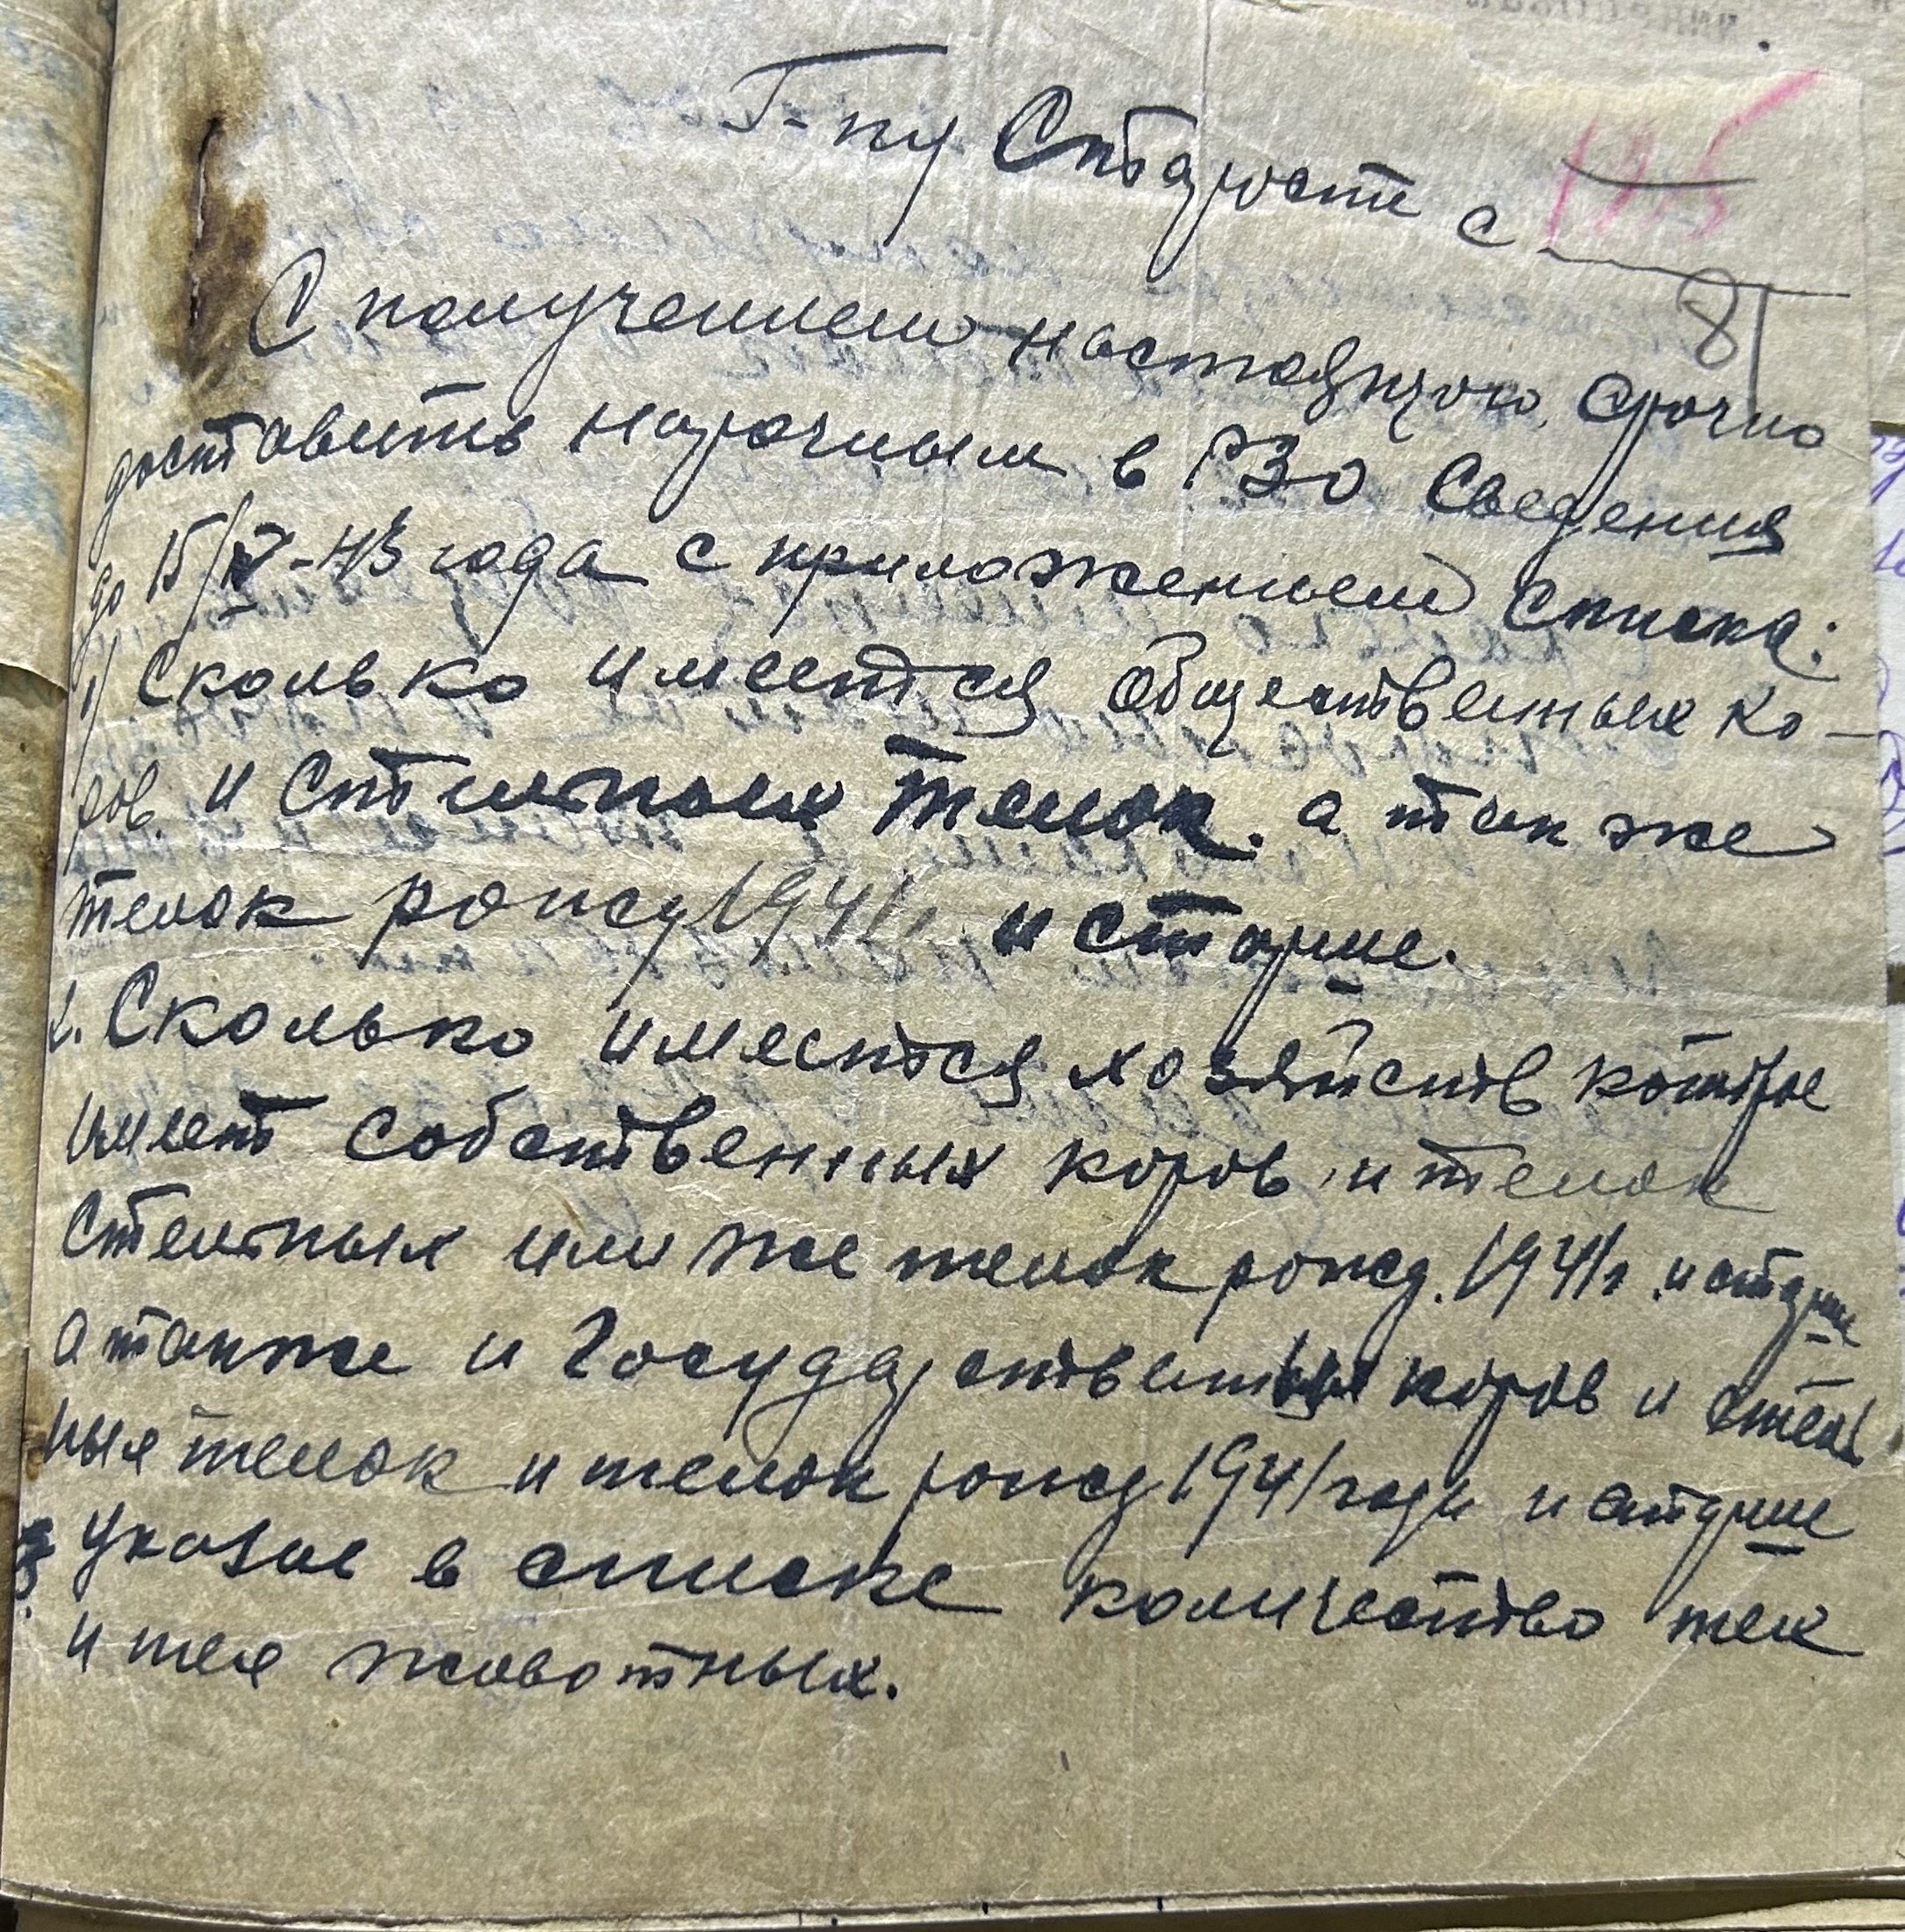 Г-ну Старосте с
125
81
С получением настоящего, срочно
доставить нарочным в РЗО сведения
до 15/IV-43 года с приложением списка:
1/ Сколько имеется общественных ко-
ров. и стельных телок. а так же
телок рожд 1941г и старше.
2. Сколько имеется хозяйств которые
имеет собственных коров и телок
стельных или же телок рожд. 1941г. и старше
а также и Государственных коров и стель
ных телок и телок рожд 1941 года и старше
указав в списке количество тех
и тех животных.